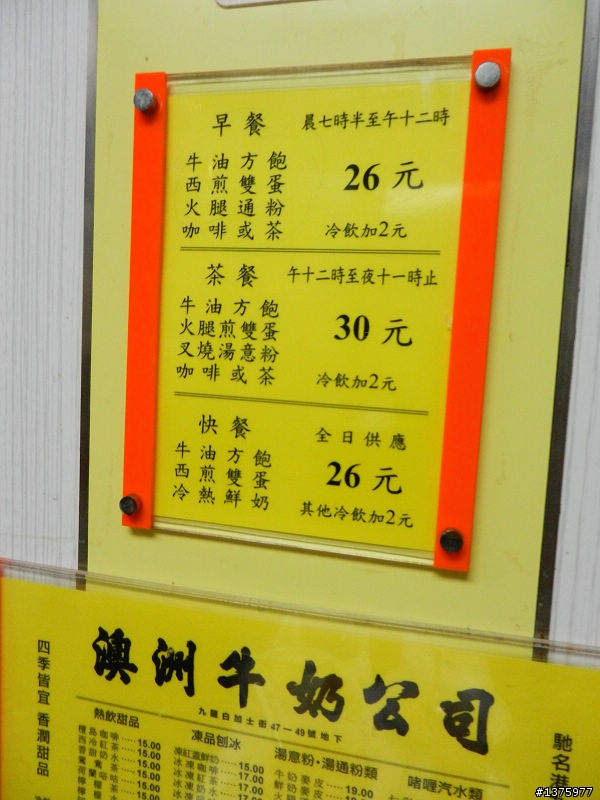 早餐 晨七時半至午十二時
牛油方飽
西煎雙蛋
火腿通粉
咖啡或茶
26元
冷飲加2元
茶餐 午十二時至夜十一時止
牛油方飽
火腿煎雙蛋
叉燒湯意粉
咖啡或茶
30元
冷飲加2元
快餐 全日供應
牛油方飽
西煎雙蛋
冷熱鮮奶
26元
其他冷飲加2元
四季皆宜 香潤甜品
澳洲牛奶公司
九龍白加士街47—49號地下
馳名港
熱飲甜品
檀島咖啡 15.00
西冷紅茶 15.00
香甜奶水 15.00
凍品刨冰
凍紅蓋鮮奶 15.00
冰凍咖啡 17.00
冰凍紅茶 17.00
冰凍奶水 17.00
湯意粉·湯通粉類
牛奶麥皮 19.00
鮮奶麥皮
啫喱汽水類
#1375977